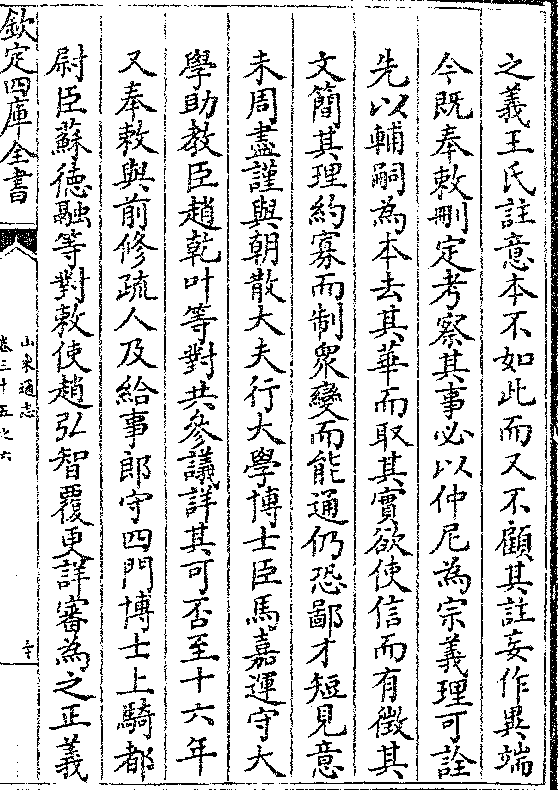 之義王氏註意本不如此而又不顧其註妄作異端
今既奉敕刪定考察其事必以仲尼為宗義理可詮
先以輔嗣為本去其華而取其實欲使信而有徵其
文簡其理約寡而制衆變而能通仍恐鄙才短見意
未周盡謹與朝散大夫行大學博士臣馬嘉運守大
學助教臣趙乾叶等對共參議詳其可否至十六年
又奉敕與前修疏人及給事郎守四門博士上騎都
尉臣蘇德融等對敕使趙弘智覆更詳審為之正義
欽定四庫全書
山東通志
卷三十五之六